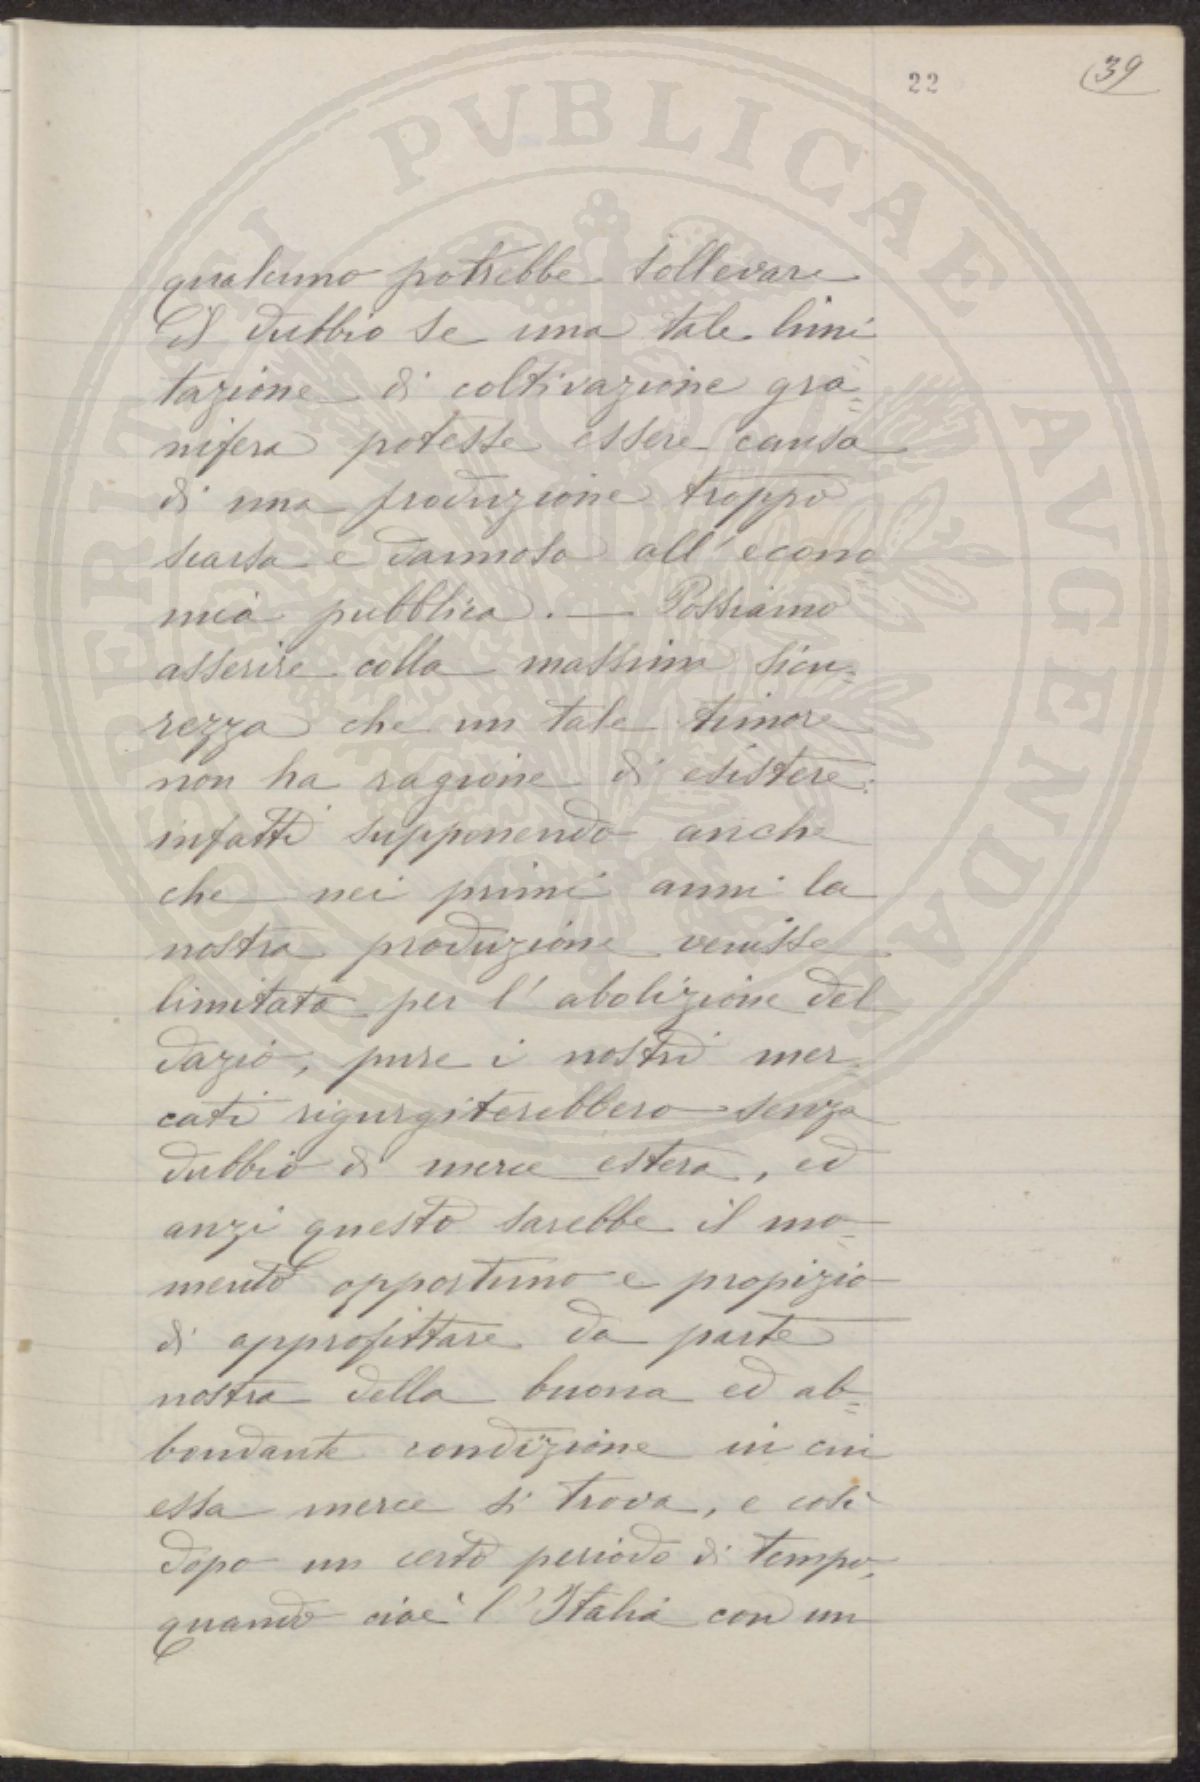 22
39
qualcuno potrebbe sollevare
il dubbio se una tale limi
tazione di coltivazione gra=
nifera potesse essere causa
di una produzione troppo
scarsa e dannosa all'econo
mia pubblica. — Possiamo
asserire colla massima sicu=
rezza che un tale timore
non ha ragione di esistere:
infatti supponendo anche
che nei primi anni la
nostra produzione venisse
limitata per l'abolizione del
dazio, pure i nostri mer=
cati rigurgiterebbero senza
dubbio di merce estera, ed
anzi questo sarebbe il mo=
mento opportuno e propizio
di approfittare da parte
nostra della buona ed ab=
bondante condizione in cui
essa merce si trova, e così
dopo un certo periodo di tempo,
quando cioè l'Italia con un
PERICULA PUBLICAE AUGENDAE